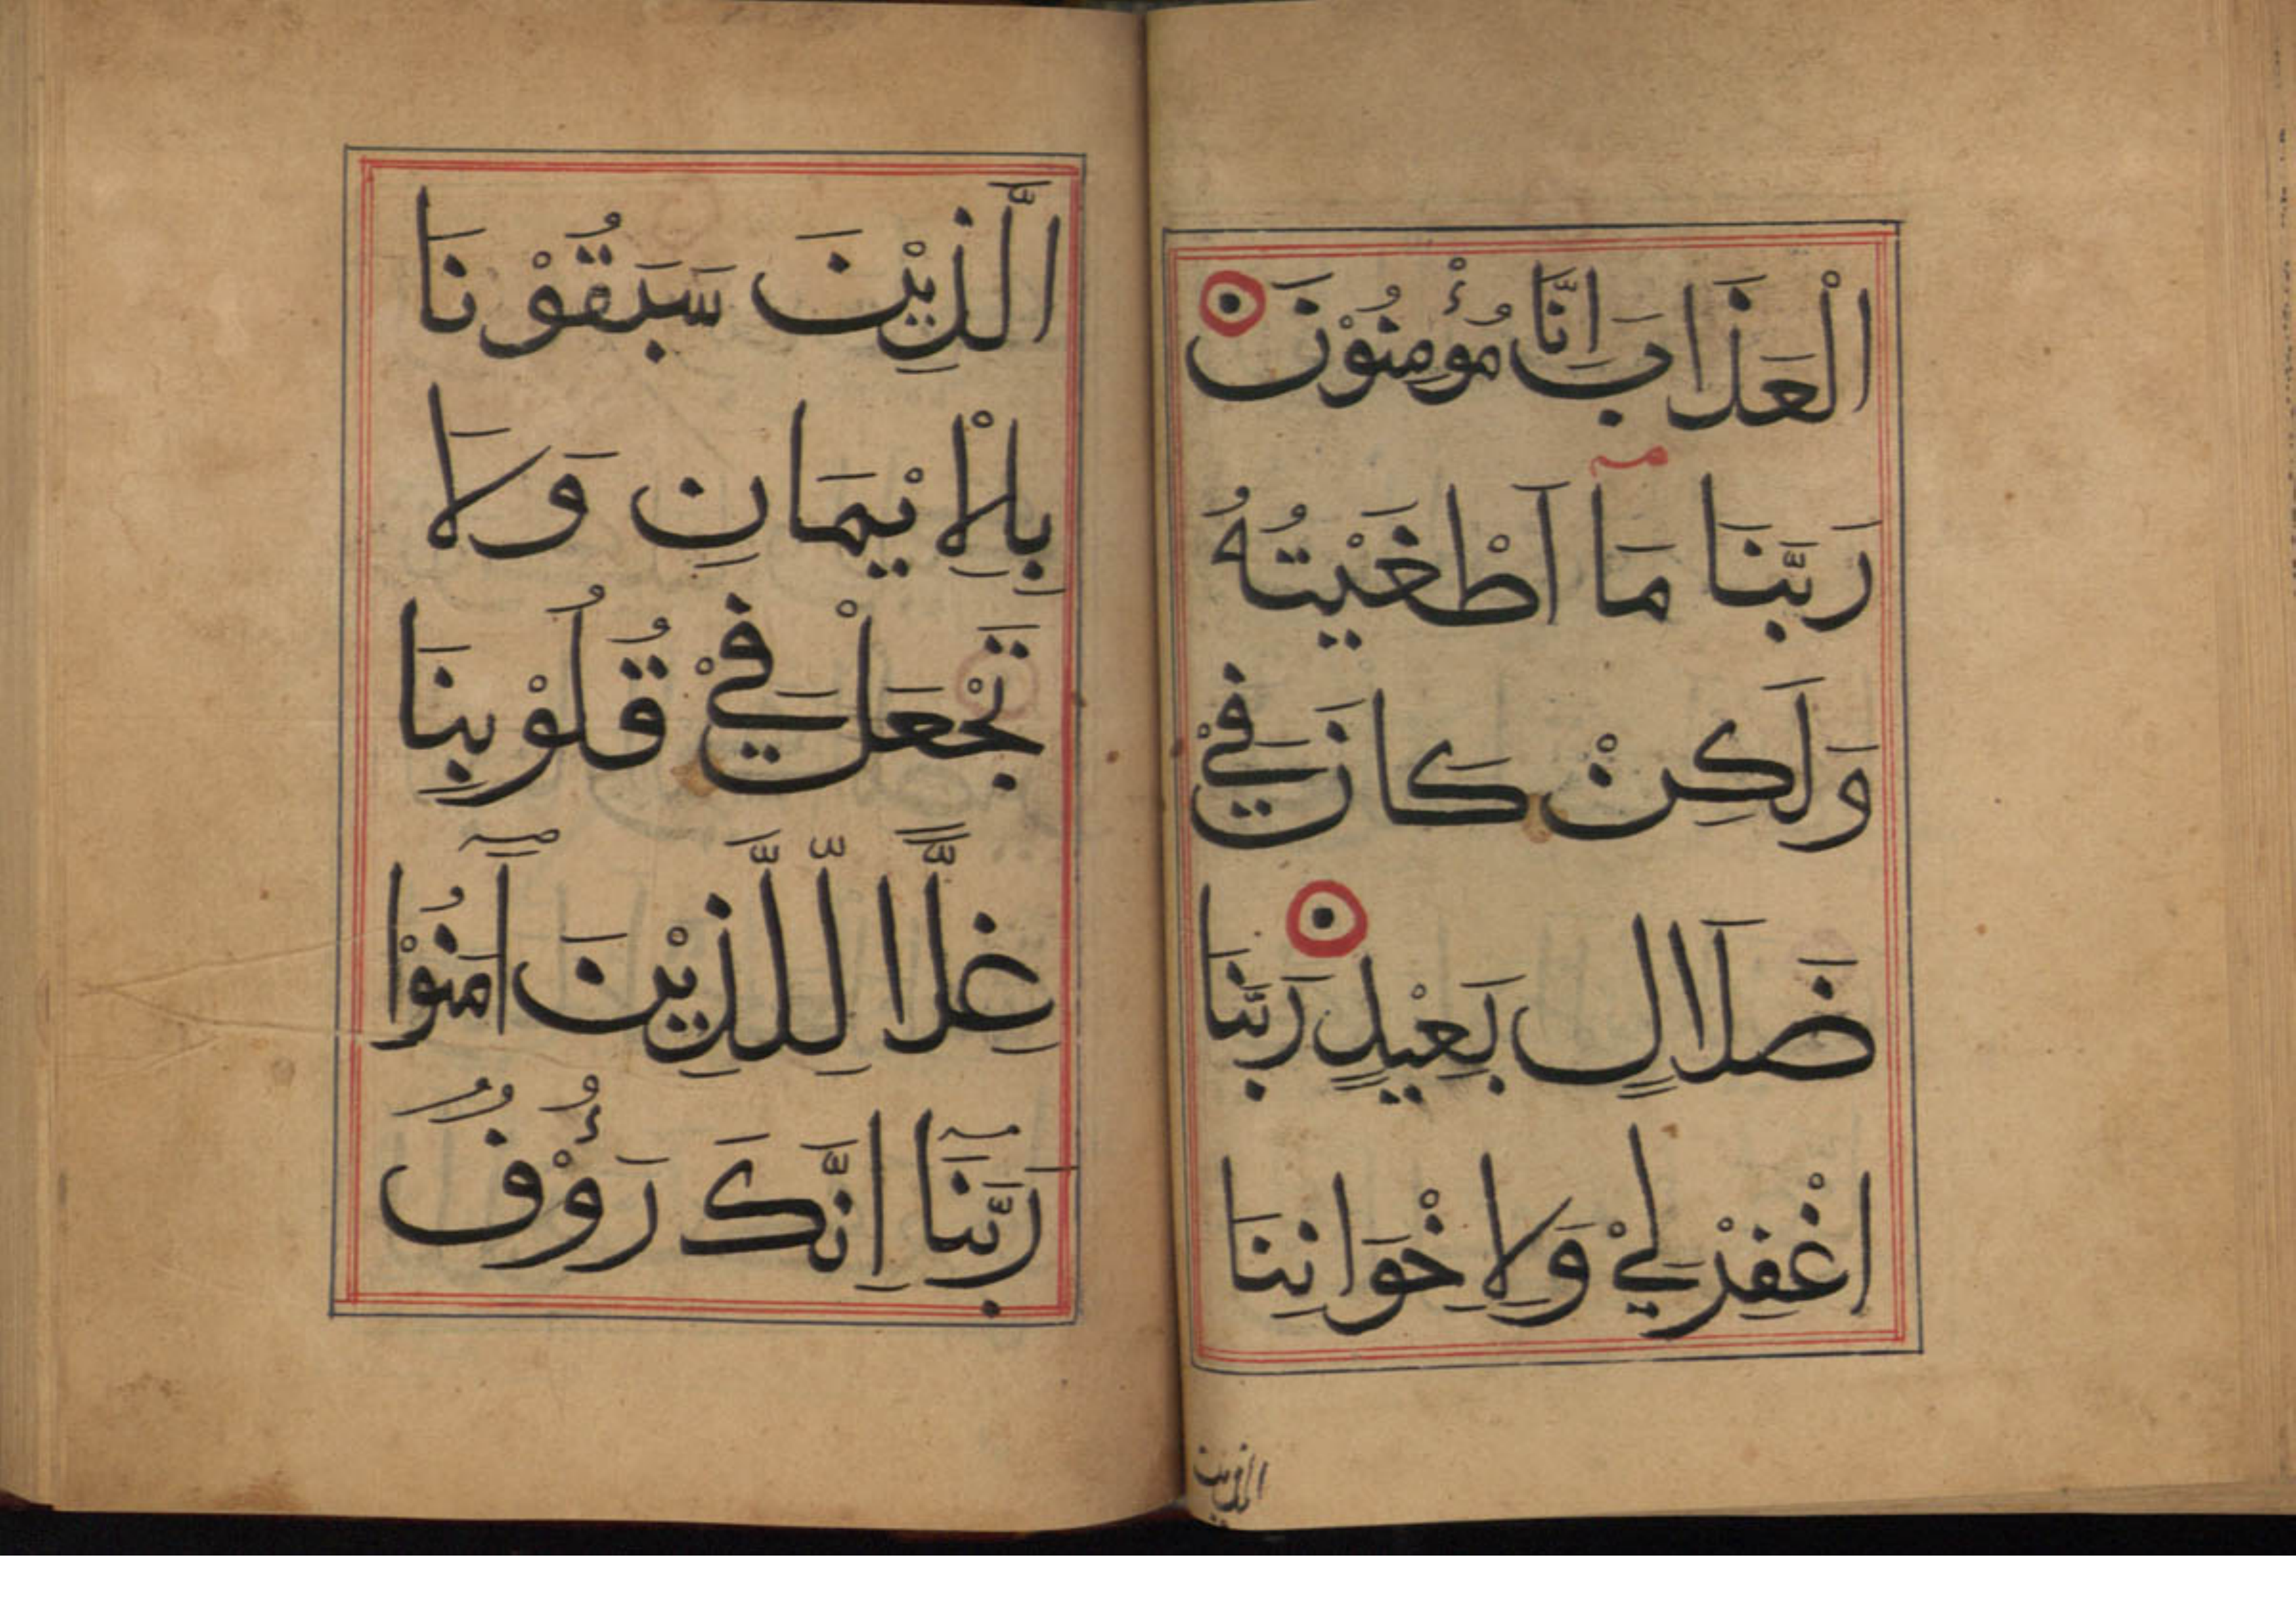 الْعَذَابَ اِنَّا مُؤْمِنُوْنَ
رَبَّنَا مَآ اَطْغَيْتُهُ
وَلَكِنْ كَانَ فِيْ
ضَلَالٍ بَعِيْدٍ رَبَّنَا
اغْفِرْ لِيْ وَلِاِخْوَانِنَا
الذين
الَّذِيْنَ سَبَقُوْنَا
بِالْاِيْمَانِ وَلَا
تَجْعَلْ فِيْ قُلُوْبِنَا
غِلًّا لِّلَّذِيْنَ آمَنُوْا
رَبَّنَآ اِنَّكَ رَؤُوْفٌ